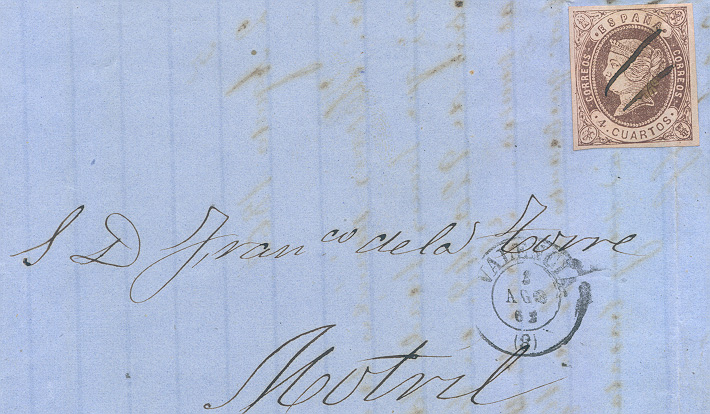 ESPAÑA
CORREOS
CORREOS
4 CUARTOS
S D Fran^co de la Torre
VALENCIA
AGO
(8)
Motril